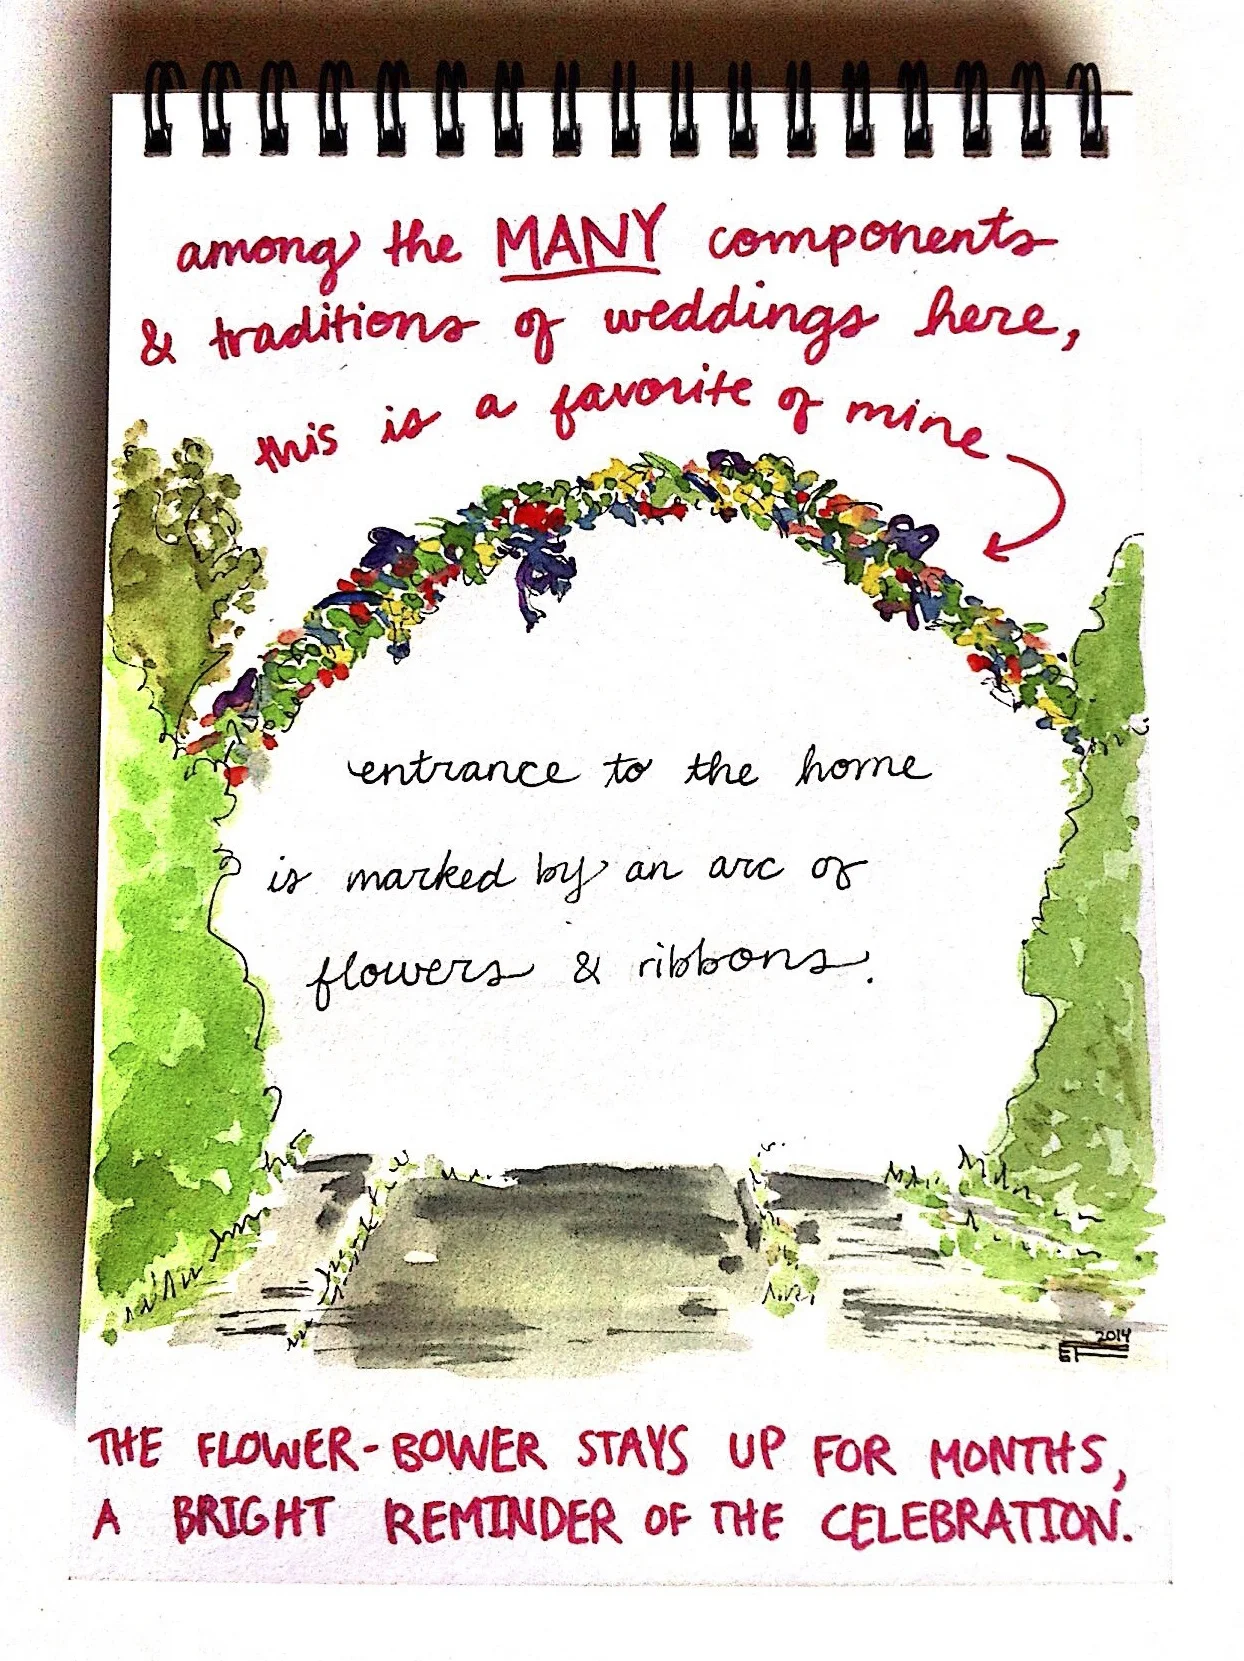 among the MANY components
& traditions of weddings here,
this is a favorite of mine
entrance to the home
is marked by an arc of
flowers & ribbons.
2014
ET
THE FLOWER-BOWER STAYS UP FOR MONTHS,
A BRIGHT REMINDER OF THE CELEBRATION.